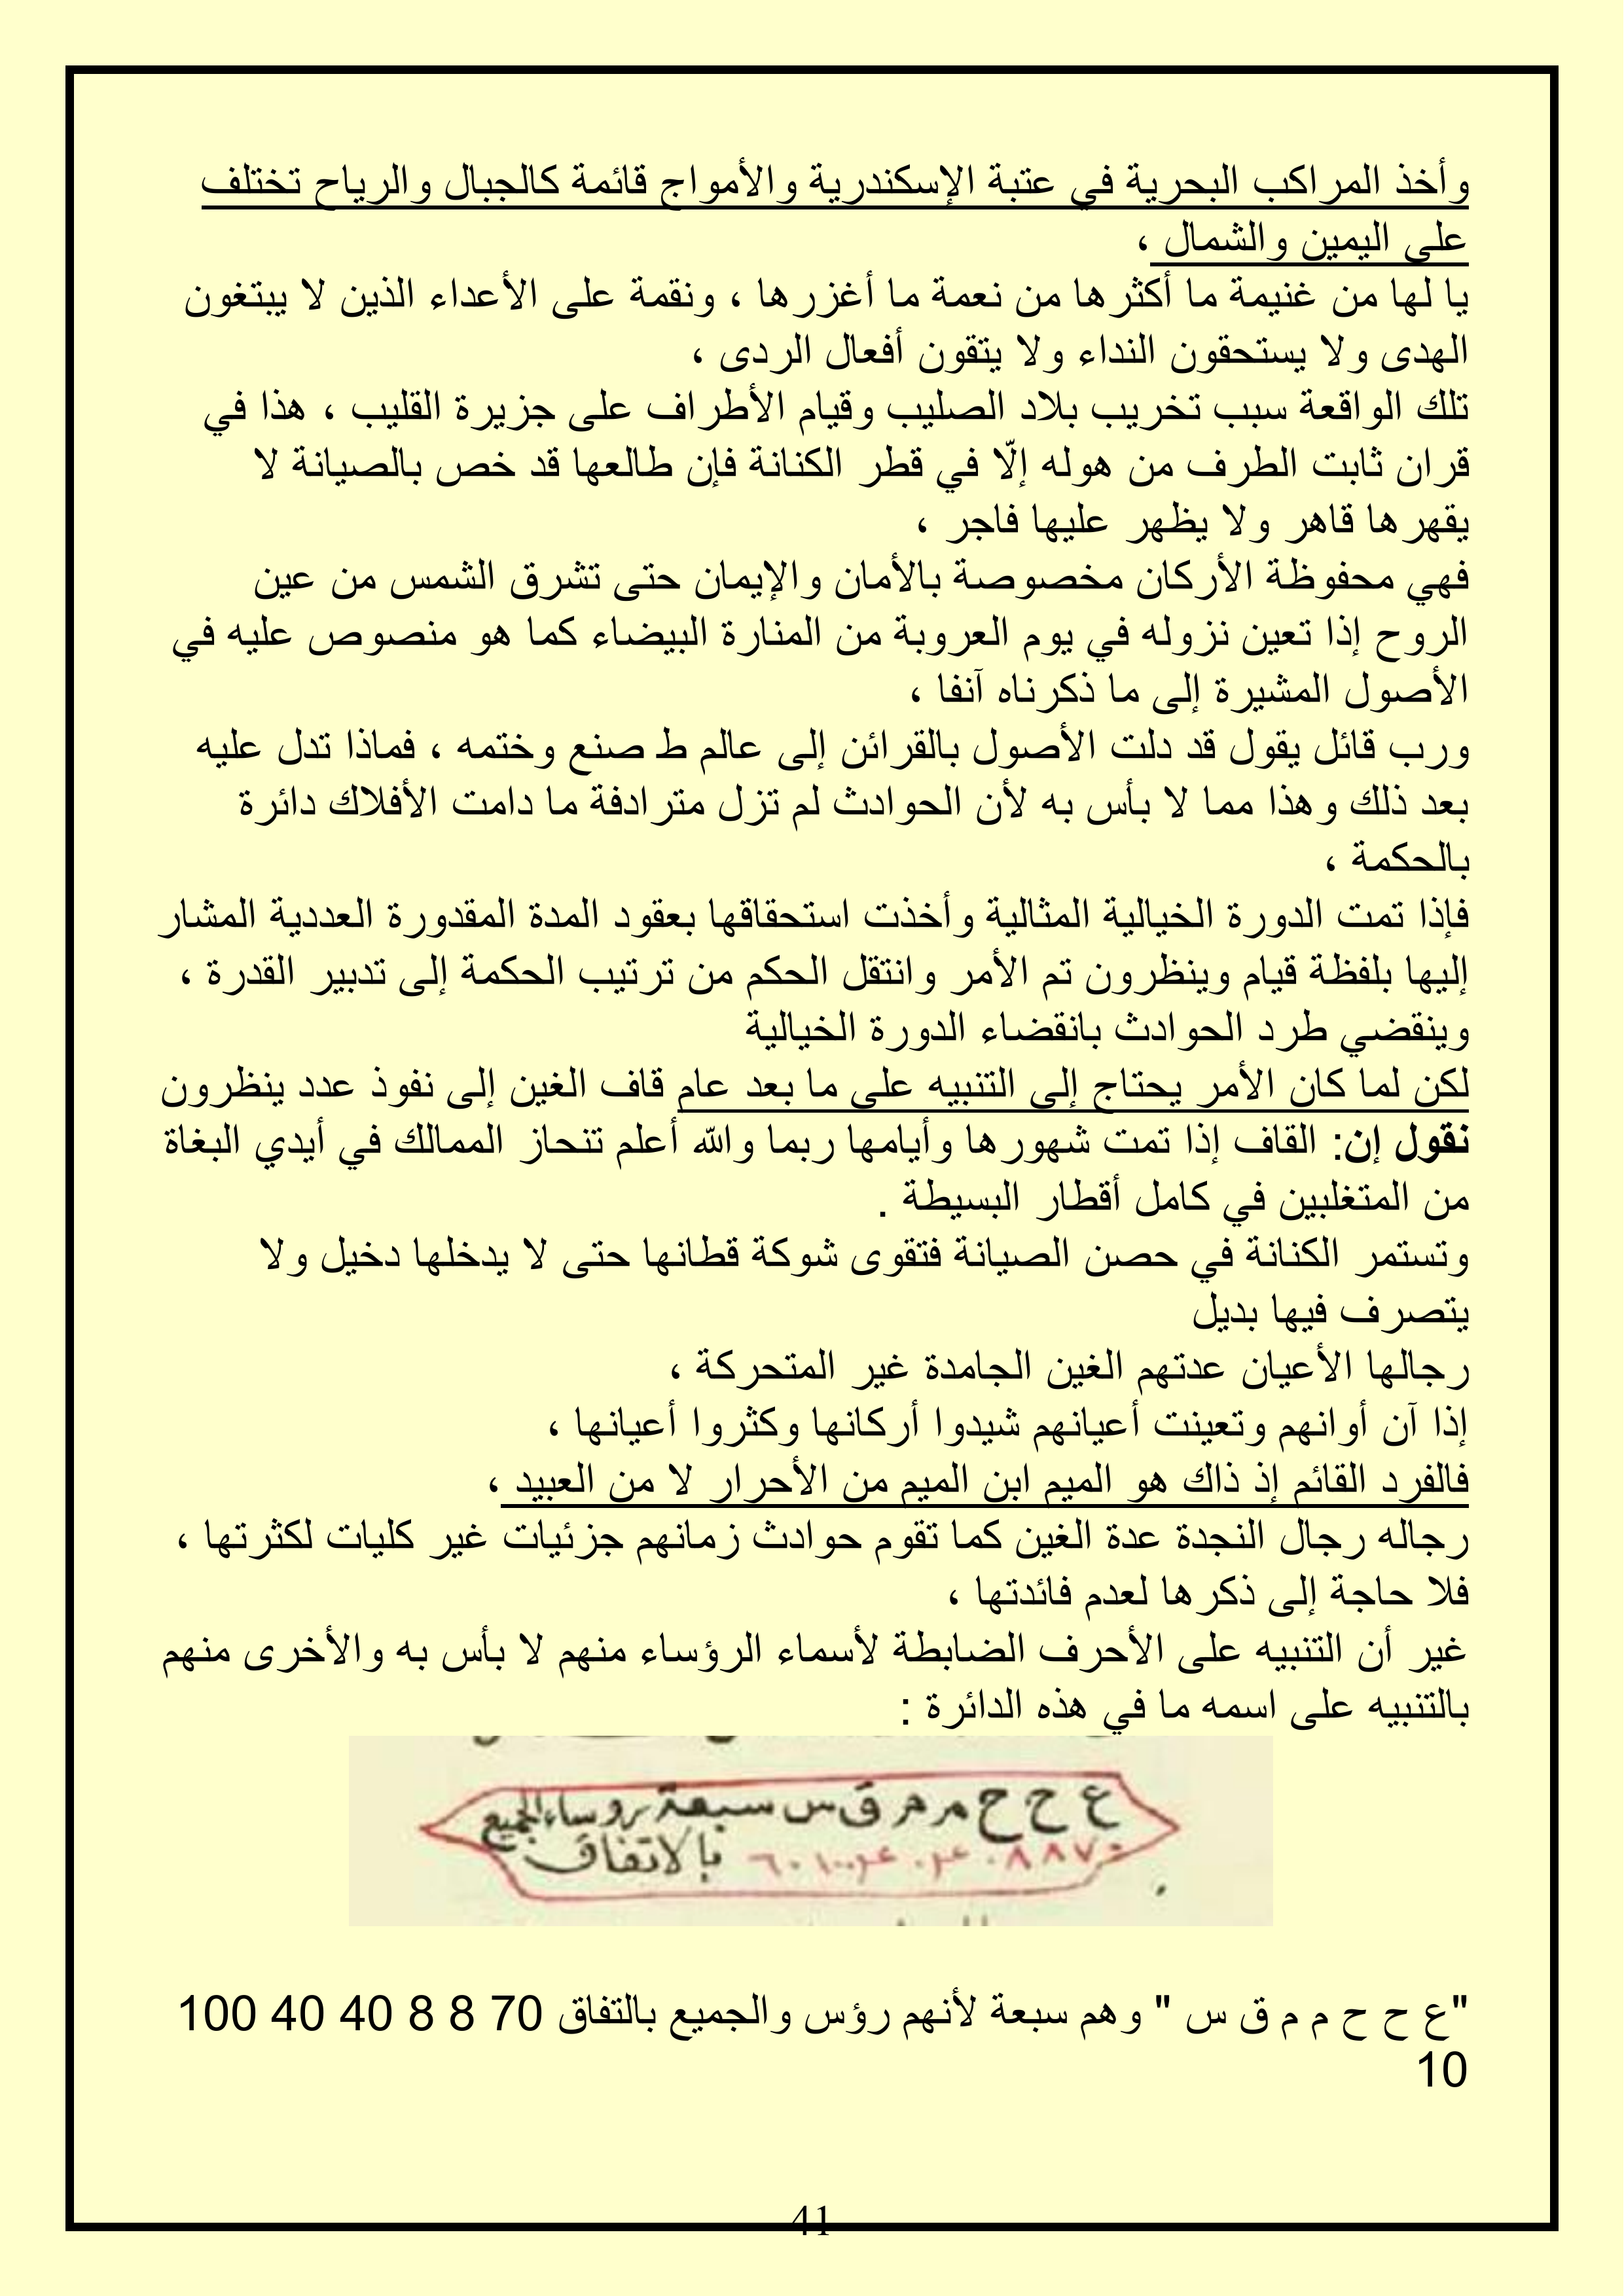 وأخذ المراكب البحرية في عتبة الإسكندرية والأمواج قائمة كالجبال والرياح تختلف
على اليمين والشمال ،
يا لها من غنيمة ما أكثرها من نعمة ما أغزرها ، ونقمة على الأعداء الذين لا يبتغون
الهدى ولا يستحقون النداء ولا يتقون أفعال الردى ،
تلك الواقعة سبب تخريب بلاد الصليب وقيام الأطراف على جزيرة القليب ، هذا في
قران ثابت الطرف من هوله إلّا في قطر الكنانة فإن طالعها قد خص بالصيانة لا
يقهرها قاهر ولا يظهر عليها فاجر ،
فهي محفوظة الأركان مخصوصة بالأمان والإيمان حتى تشرق الشمس من عين
الروح إذا تعين نزوله في يوم العروبة من المنارة البيضاء كما هو منصوص عليه في
الأصول المشيرة إلى ما ذكرناه آنفا ،
ورب قائل يقول قد دلت الأصول بالقرائن إلى عالم ط صنع وختمه ، فماذا تدل عليه
بعد ذلك وهذا مما لا بأس به لأن الحوادث لم تزل مترادفة ما دامت الأفلاك دائرة
بالحكمة ،
فإذا تمت الدورة الخيالية المثالية وأخذت استحقاقها بعقود المدة المقدورة العددية المشار
إليها بلفظة قيام وينظرون تم الأمر وانتقل الحكم من ترتيب الحكمة إلى تدبير القدرة ،
وينقضي طرد الحوادث بانقضاء الدورة الخيالية
لكن لما كان الأمر يحتاج إلى التنبيه على ما بعد عام قاف الغين إلى نفوذ عدد ينظرون
نقول إن: القاف إذا تمت شهورها وأيامها ربما والله أعلم تنحاز الممالك في أيدي البغاة
من المتغلبين في كامل أقطار البسيطة .
وتستمر الكنانة في حصن الصيانة فتقوى شوكة قطانها حتى لا يدخلها دخيل ولا
يتصرف فيها بديل
رجالها الأعيان عدتهم الغين الجامدة غير المتحركة ،
إذا آن أوانهم وتعينت أعيانهم شيدوا أركانها وكثروا أعيانها ،
فالفرد القائم إذ ذاك هو الميم ابن الميم من الأحرار لا من العبيد ،
رجاله رجال النجدة عدة الغين كما تقوم حوادث زمانهم جزئيات غير كليات لكثرتها ،
فلا حاجة إلى ذكرها لعدم فائدتها ،
غير أن التنبيه على الأحرف الضابطة لأسماء الرؤساء منهم لا بأس به والأخرى منهم
بالتنبيه على اسمه ما في هذه الدائرة :
ع ح ح م م ق س سبعة روساء الجميع
بالاتفاق
"ع ح ح م م ق س " وهم سبعة لأنهم رؤس والجميع بالتفاق 70 8 8 40 40 100
10
41